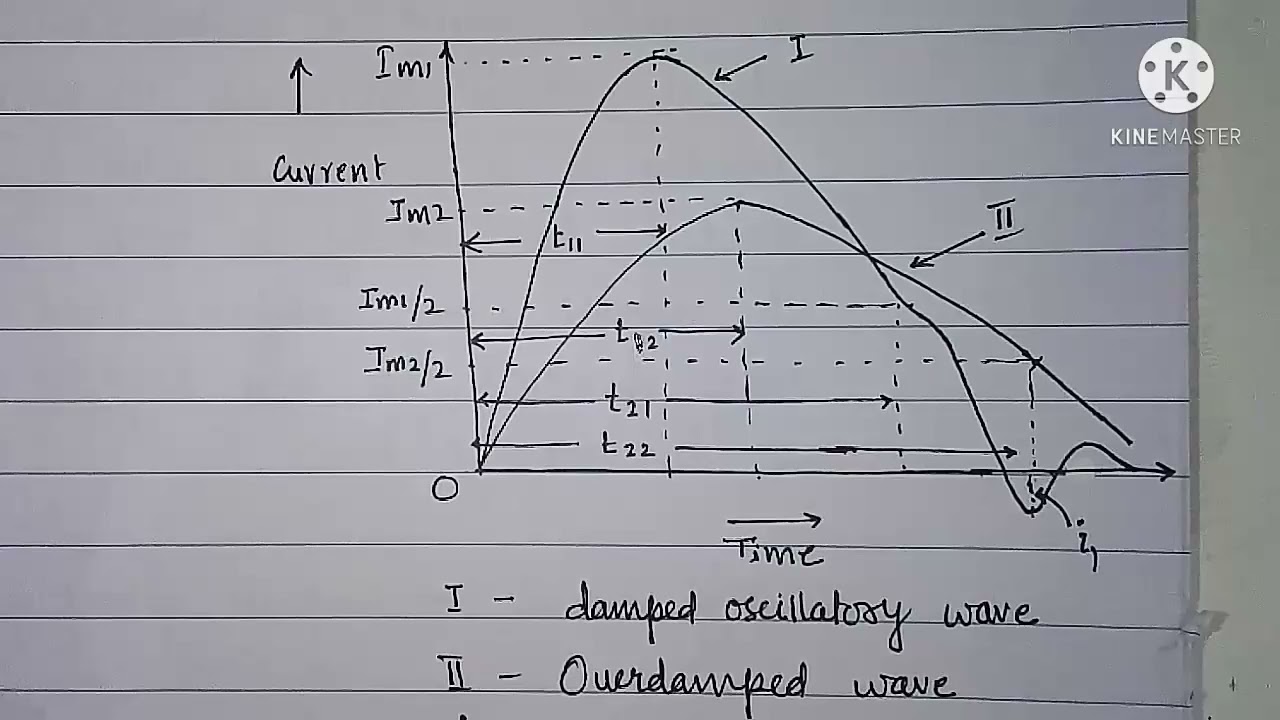 Im1
I
K
KINEMASTER
Current
Im2
II
t11
Im1/2
t12
Im2/2
t21
t22
O
Time
i1
I - damped oscillatory wave
II - Overdamped wave